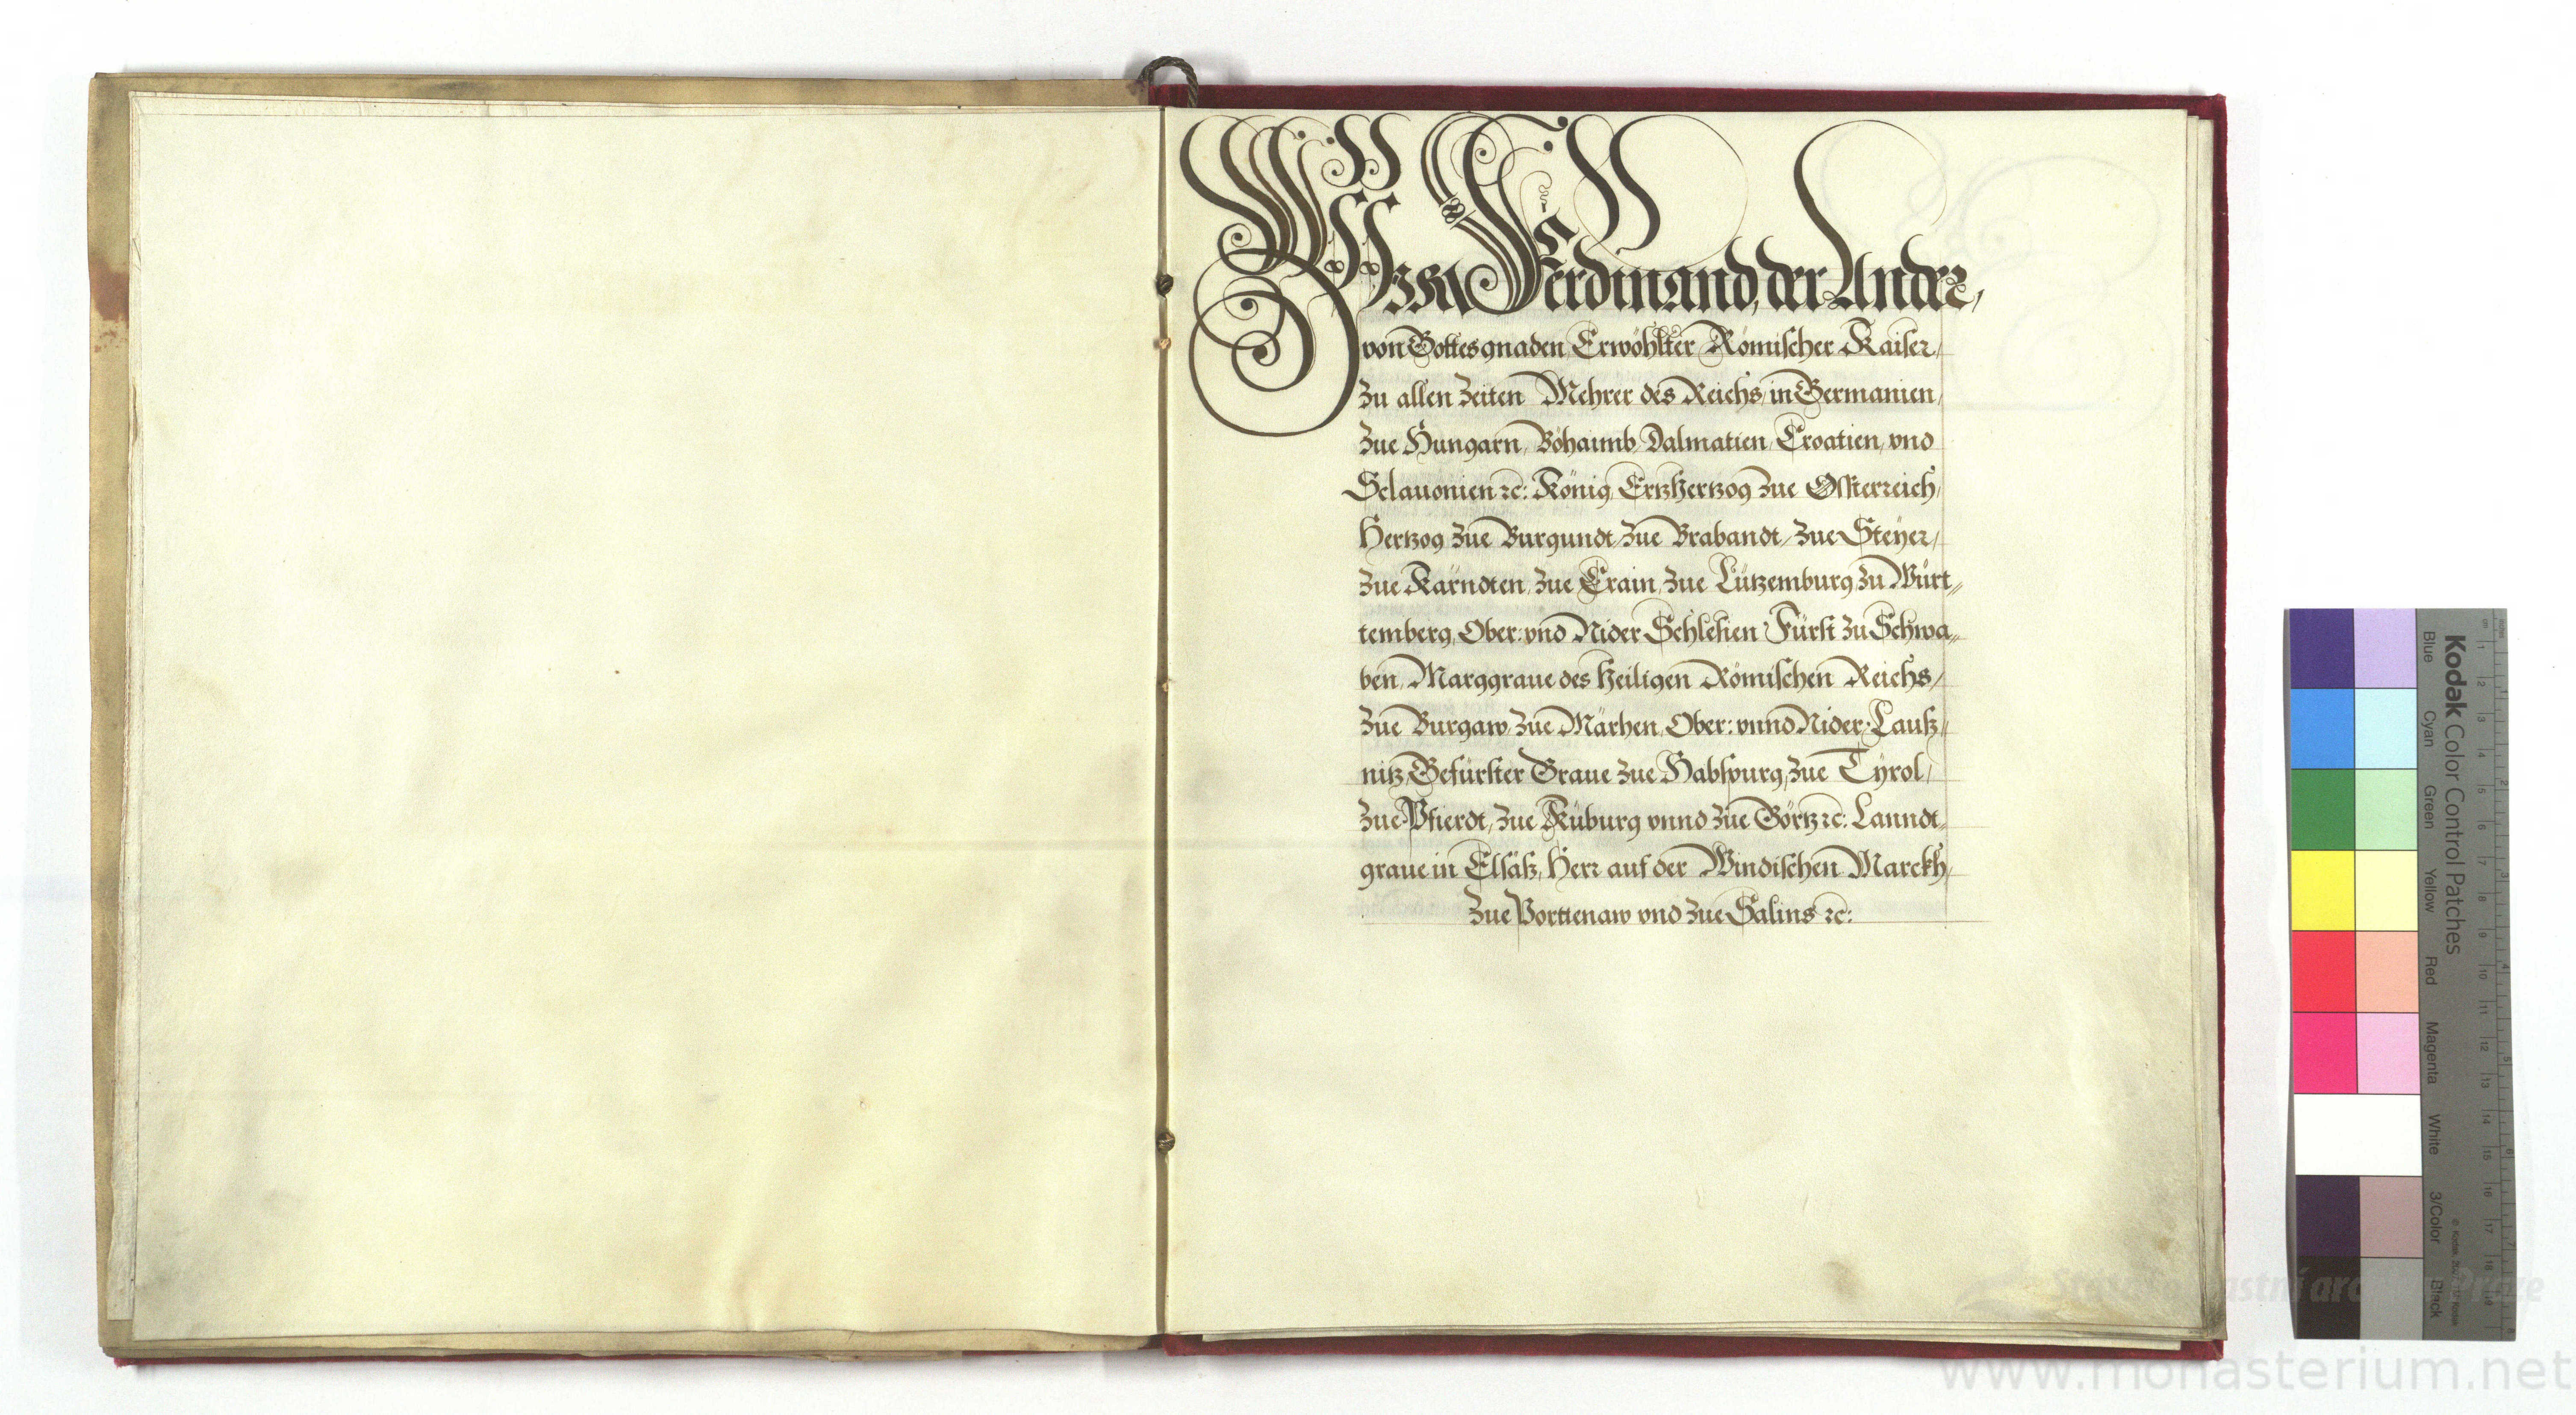 Wir Ferdinand, der Ander,
von Gottes gnaden, Erwöhlter Römischer Kaiser,
zu allen Zeiten Mehrer des Reichs, in Germanien,
zue Hungarn, Böhaimb, Dalmatien, Croatien, vnd
Sclauonien ꝛc: König, Ertzhertzog zue Össterreich,
Hertzog zue Burgundt, zue Brabandt, zue Steyer,
zue Kärndten, zue Crain, zue Lützemburg, zu Württ⸗
temberg, Ober: vnd Nider Schlesien, Fürst zu Schwa⸗
ben, Marggraue des Heiligen Römischen Reichs,
zue Burgaw, zue Märhen, Ober: vnnd Nider Lauß⸗
nitz, Gefürster Graue zue Habspurg, zue Tyrol,
zue Pfierdt, zue Küburg vnnd zue Görtz ꝛc: Lanndt⸗
graue in Elsäß, Herr auf der Windischen Marckh,
zue Porttenaw vnd zue Salins ꝛc:
Kodak Color Control Patches
Blue Cyan Green Yellow Red Magenta White 3/Color Black
www.monasterium.net